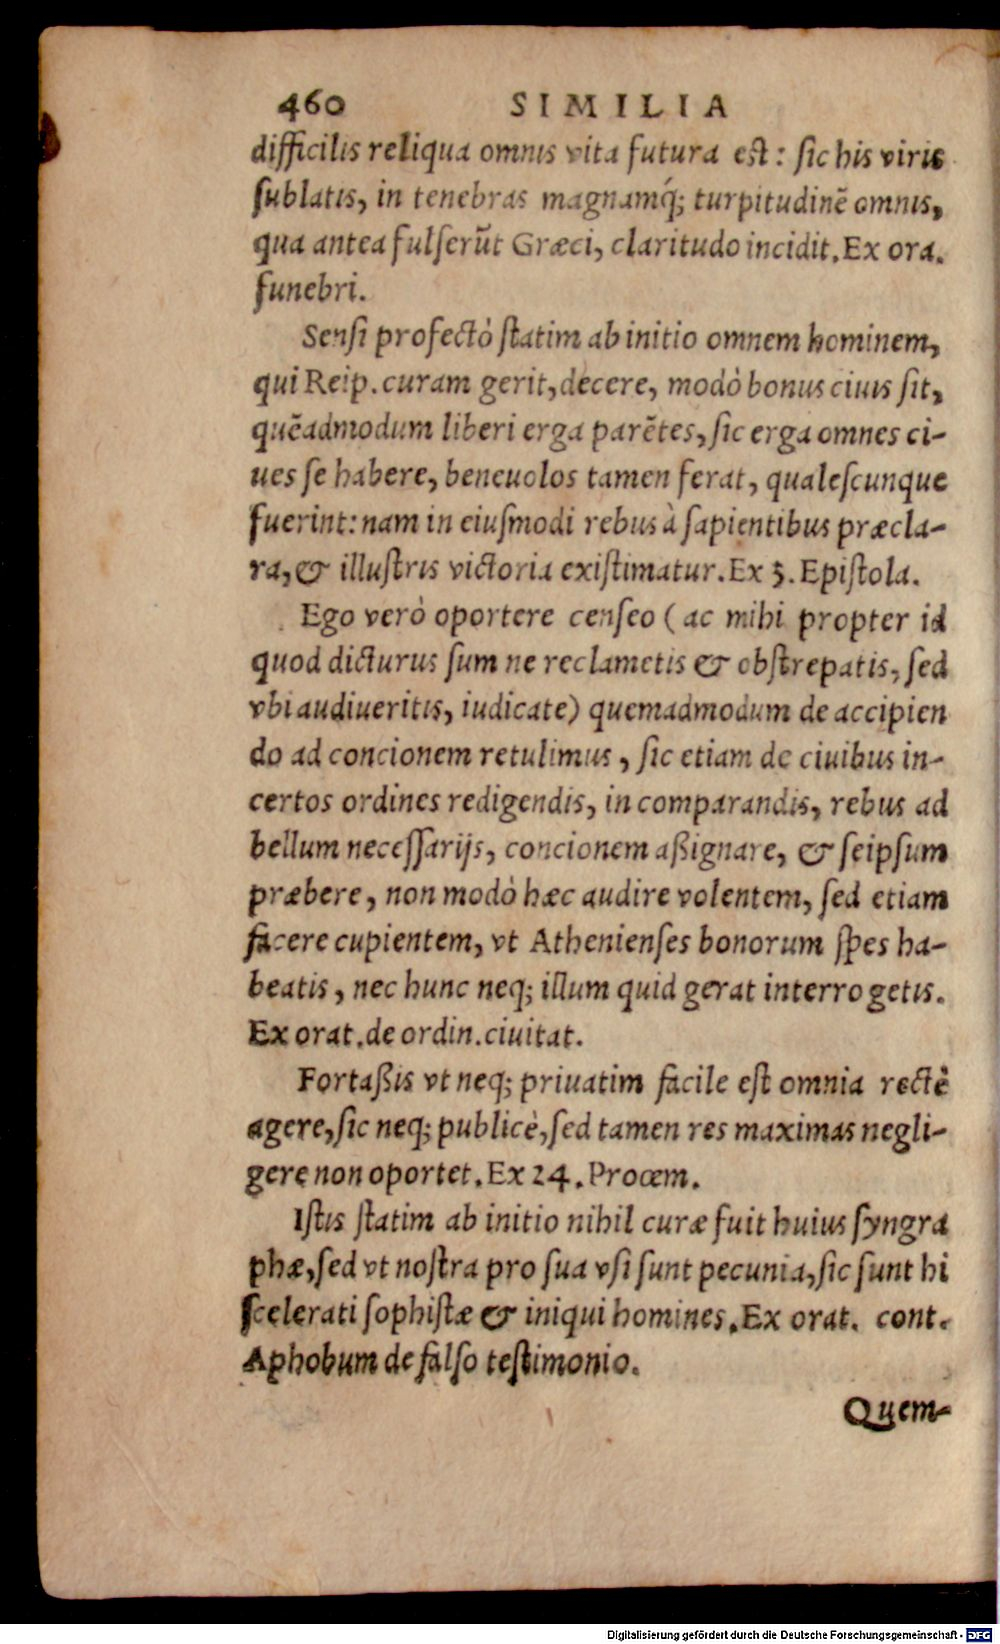 460 SIMILIA
difficilis reliqua omnis vita futura est: sic his viris
sublatis, in tenebras magnamq́; turpitudinē omnis,
qua antea fulserūt Græci, claritudo incidit. Ex ora.
funebri.
Sensi profectò statim ab initio omnem hominem,
qui Reip. curam gerit, decere, modò bonus ciuis sit,
quēadmodum liberi erga parētes, sic erga omnes ci-
ues se habere, beneuolos tamen ferat, qualescunque
fuerint: nam in eiusmodi rebus à sapientibus præcla-
ra, & illustris victoria existimatur. Ex 3. Epistola.
Ego verò oportere censeo (ac mihi propter id
quod dicturus sum ne reclametis & obstrepatis, sed
vbi audiueritis, iudicate) quemadmodum de accipien
do ad concionem retulimus, sic etiam de ciuibus in-
certos ordines redigendis, in comparandis, rebus ad
bellum necessarijs, concionem aßignare, & seipsum
præbere, non modò hæc audire volentem, sed etiam
facere cupientem, vt Athenienses bonorum spes ha-
beatis, nec hunc neq; illum quid gerat interrogetis.
Ex orat. de ordin. ciuitat.
Fortaßis vt neq; priuatim facile est omnia rectè
agere, sic neq; publicè, sed tamen res maximas negli-
gere non oportet. Ex 24. Procem.
Istis statim ab initio nihil curæ fuit huius syngra
phæ, sed vt nostra pro sua vsi sunt pecunia, sic sunt hi
scelerati sophistæ & iniqui homines. Ex orat. cont.
Aphobum de falso testimonio.
Quem-
Digitalisierung gefördert durch die Deutsche Forschungsgemeinschaft - DFG